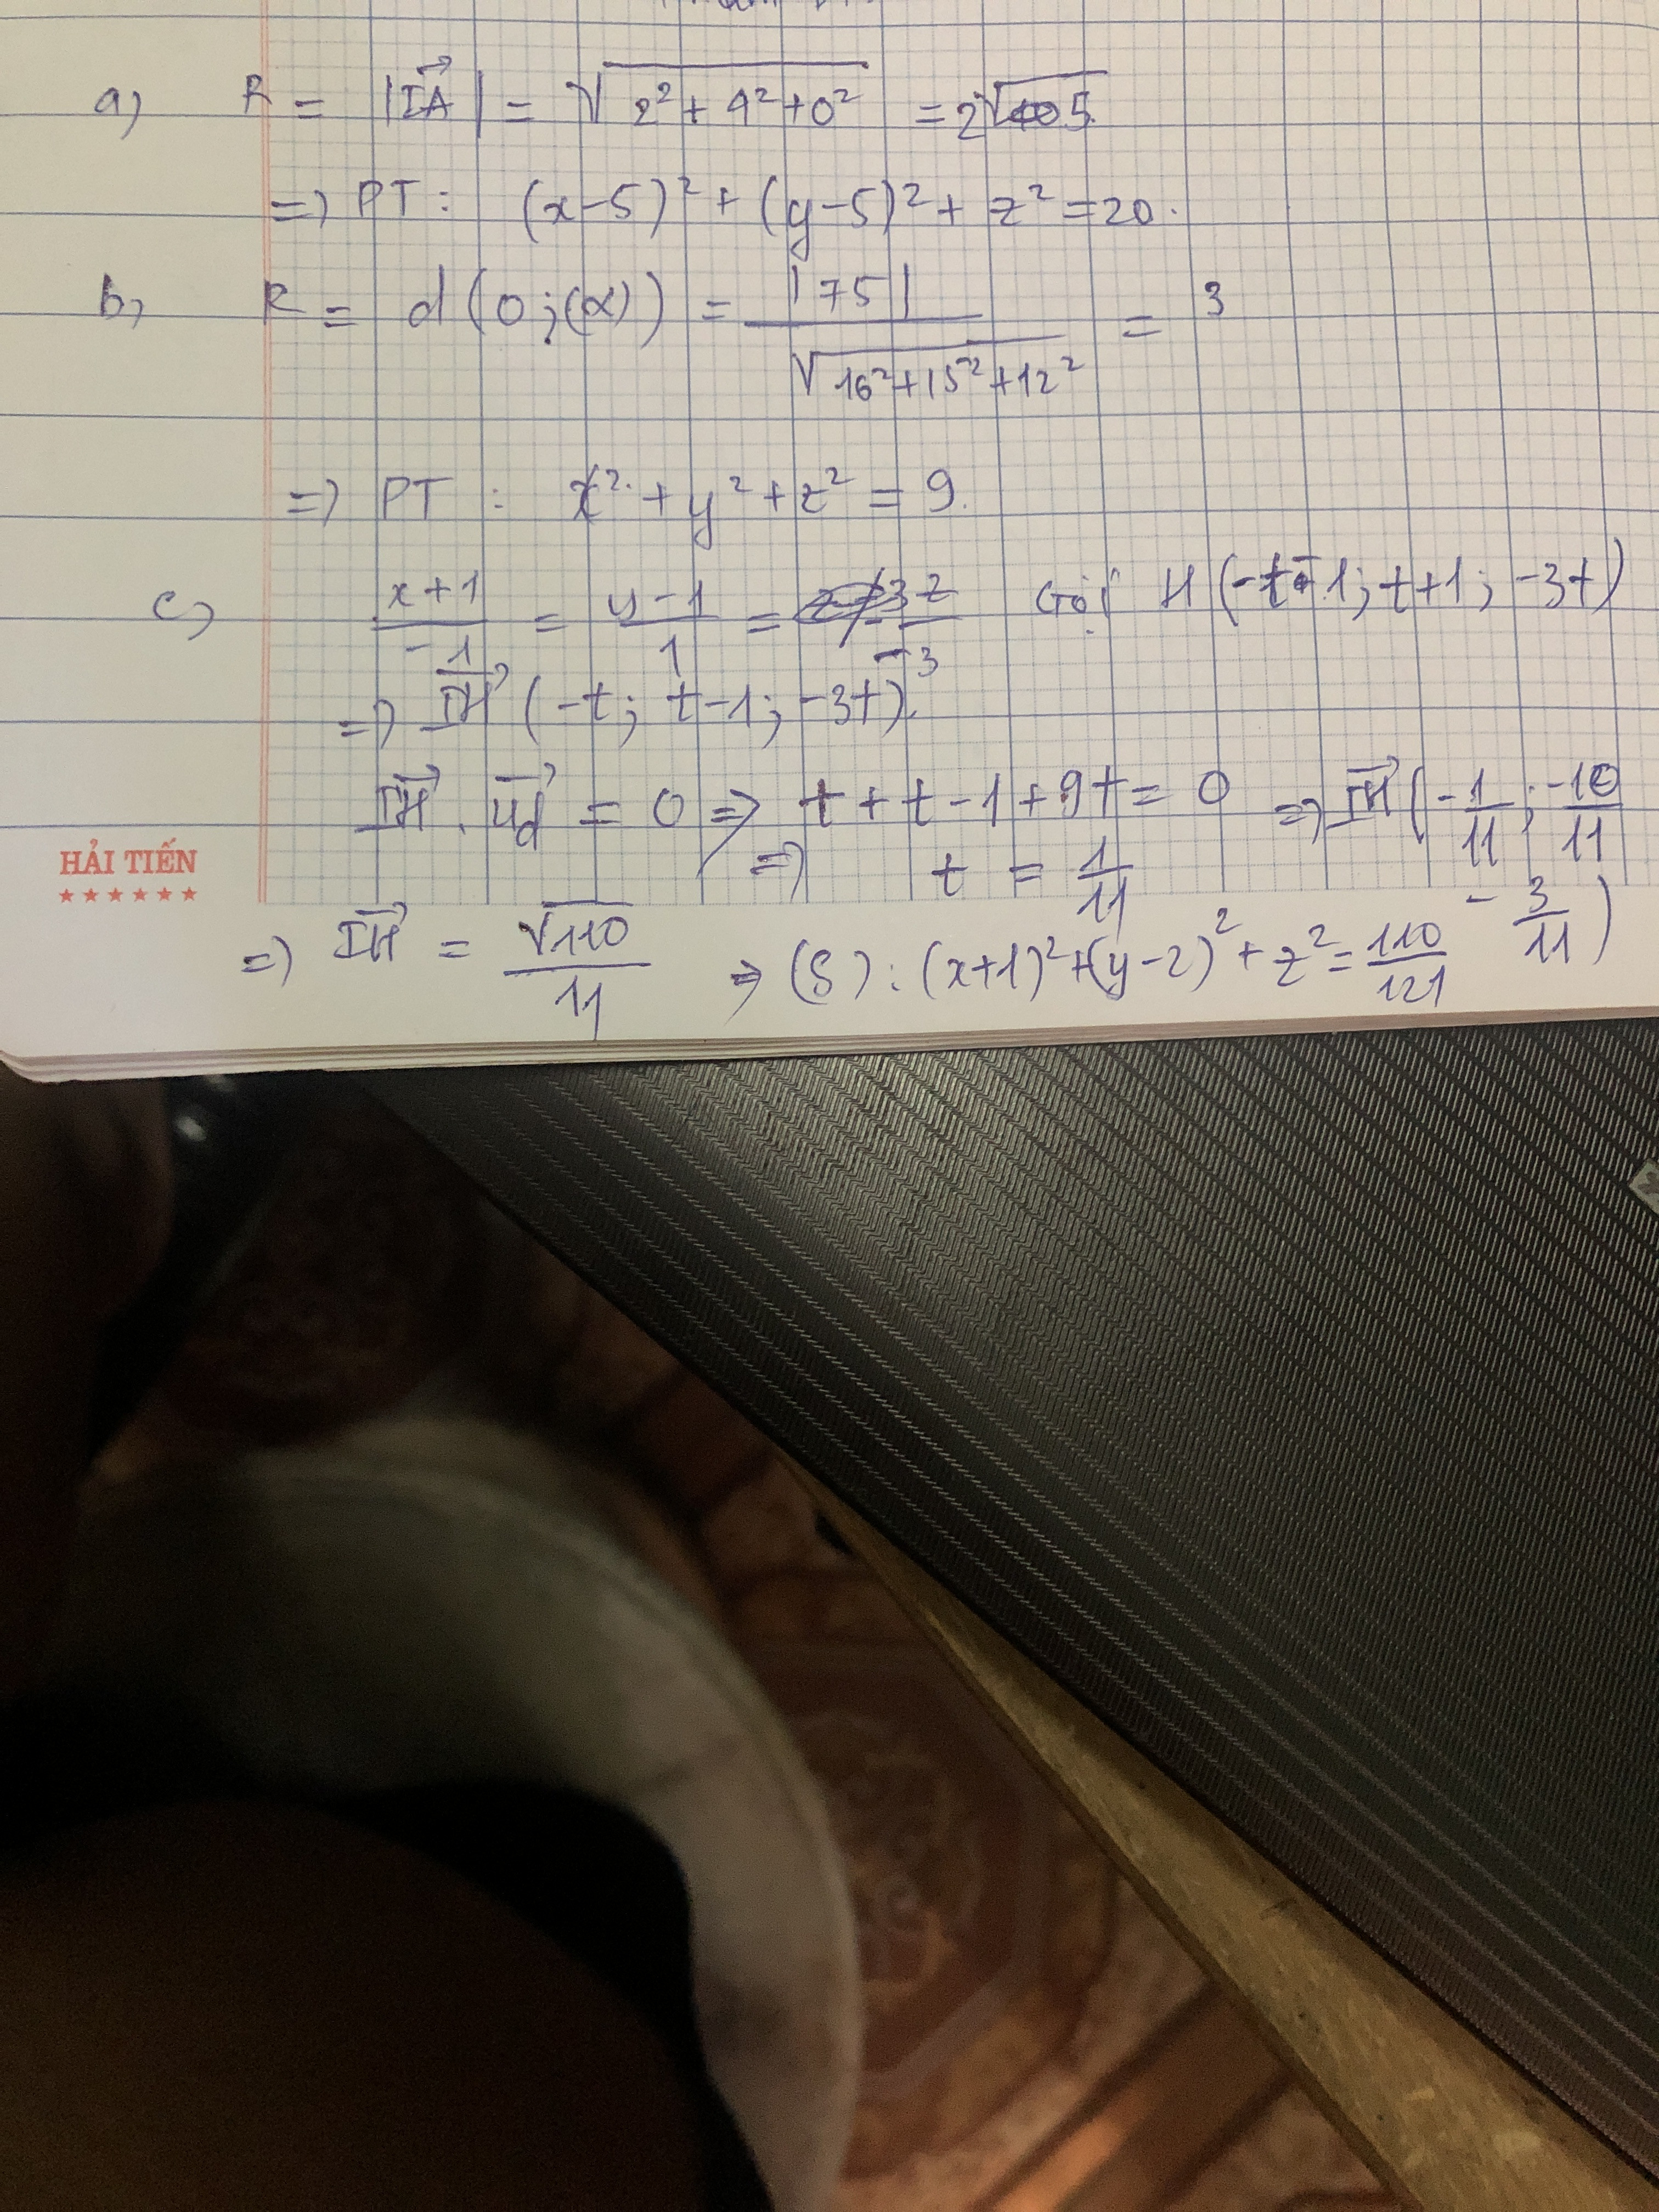 a) R = |IA→| = √(2² + 4² + 0²) = 2√5
=> PT: (x-5)² + (y-5)² + z² = 20.
b) R = d(O;(α)) = |75| / √(16²+15²+12²) = 3
=> PT: x² + y² + z² = 9.
c) (x+1)/-1 = (y-1)/1 = z/-3 Gọi H(-t-1; t+1; -3t)
=> IH→ (-t; t-1; -3t).
IH→ . ud→ = 0 => t + t - 1 + 9t = 0 => IH→ (-1/11; -10/11
=> t = 1/11 - 3/11)
HẢI TIẾN
=> IH→ = √110/11 => (S): (x+1)² + (y-2)² + z² = 110/121